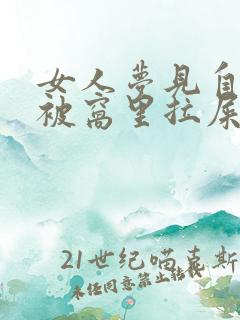 女人梦见自
被窝里拉屎
21世纪喵喜斯
未经同意禁止转载